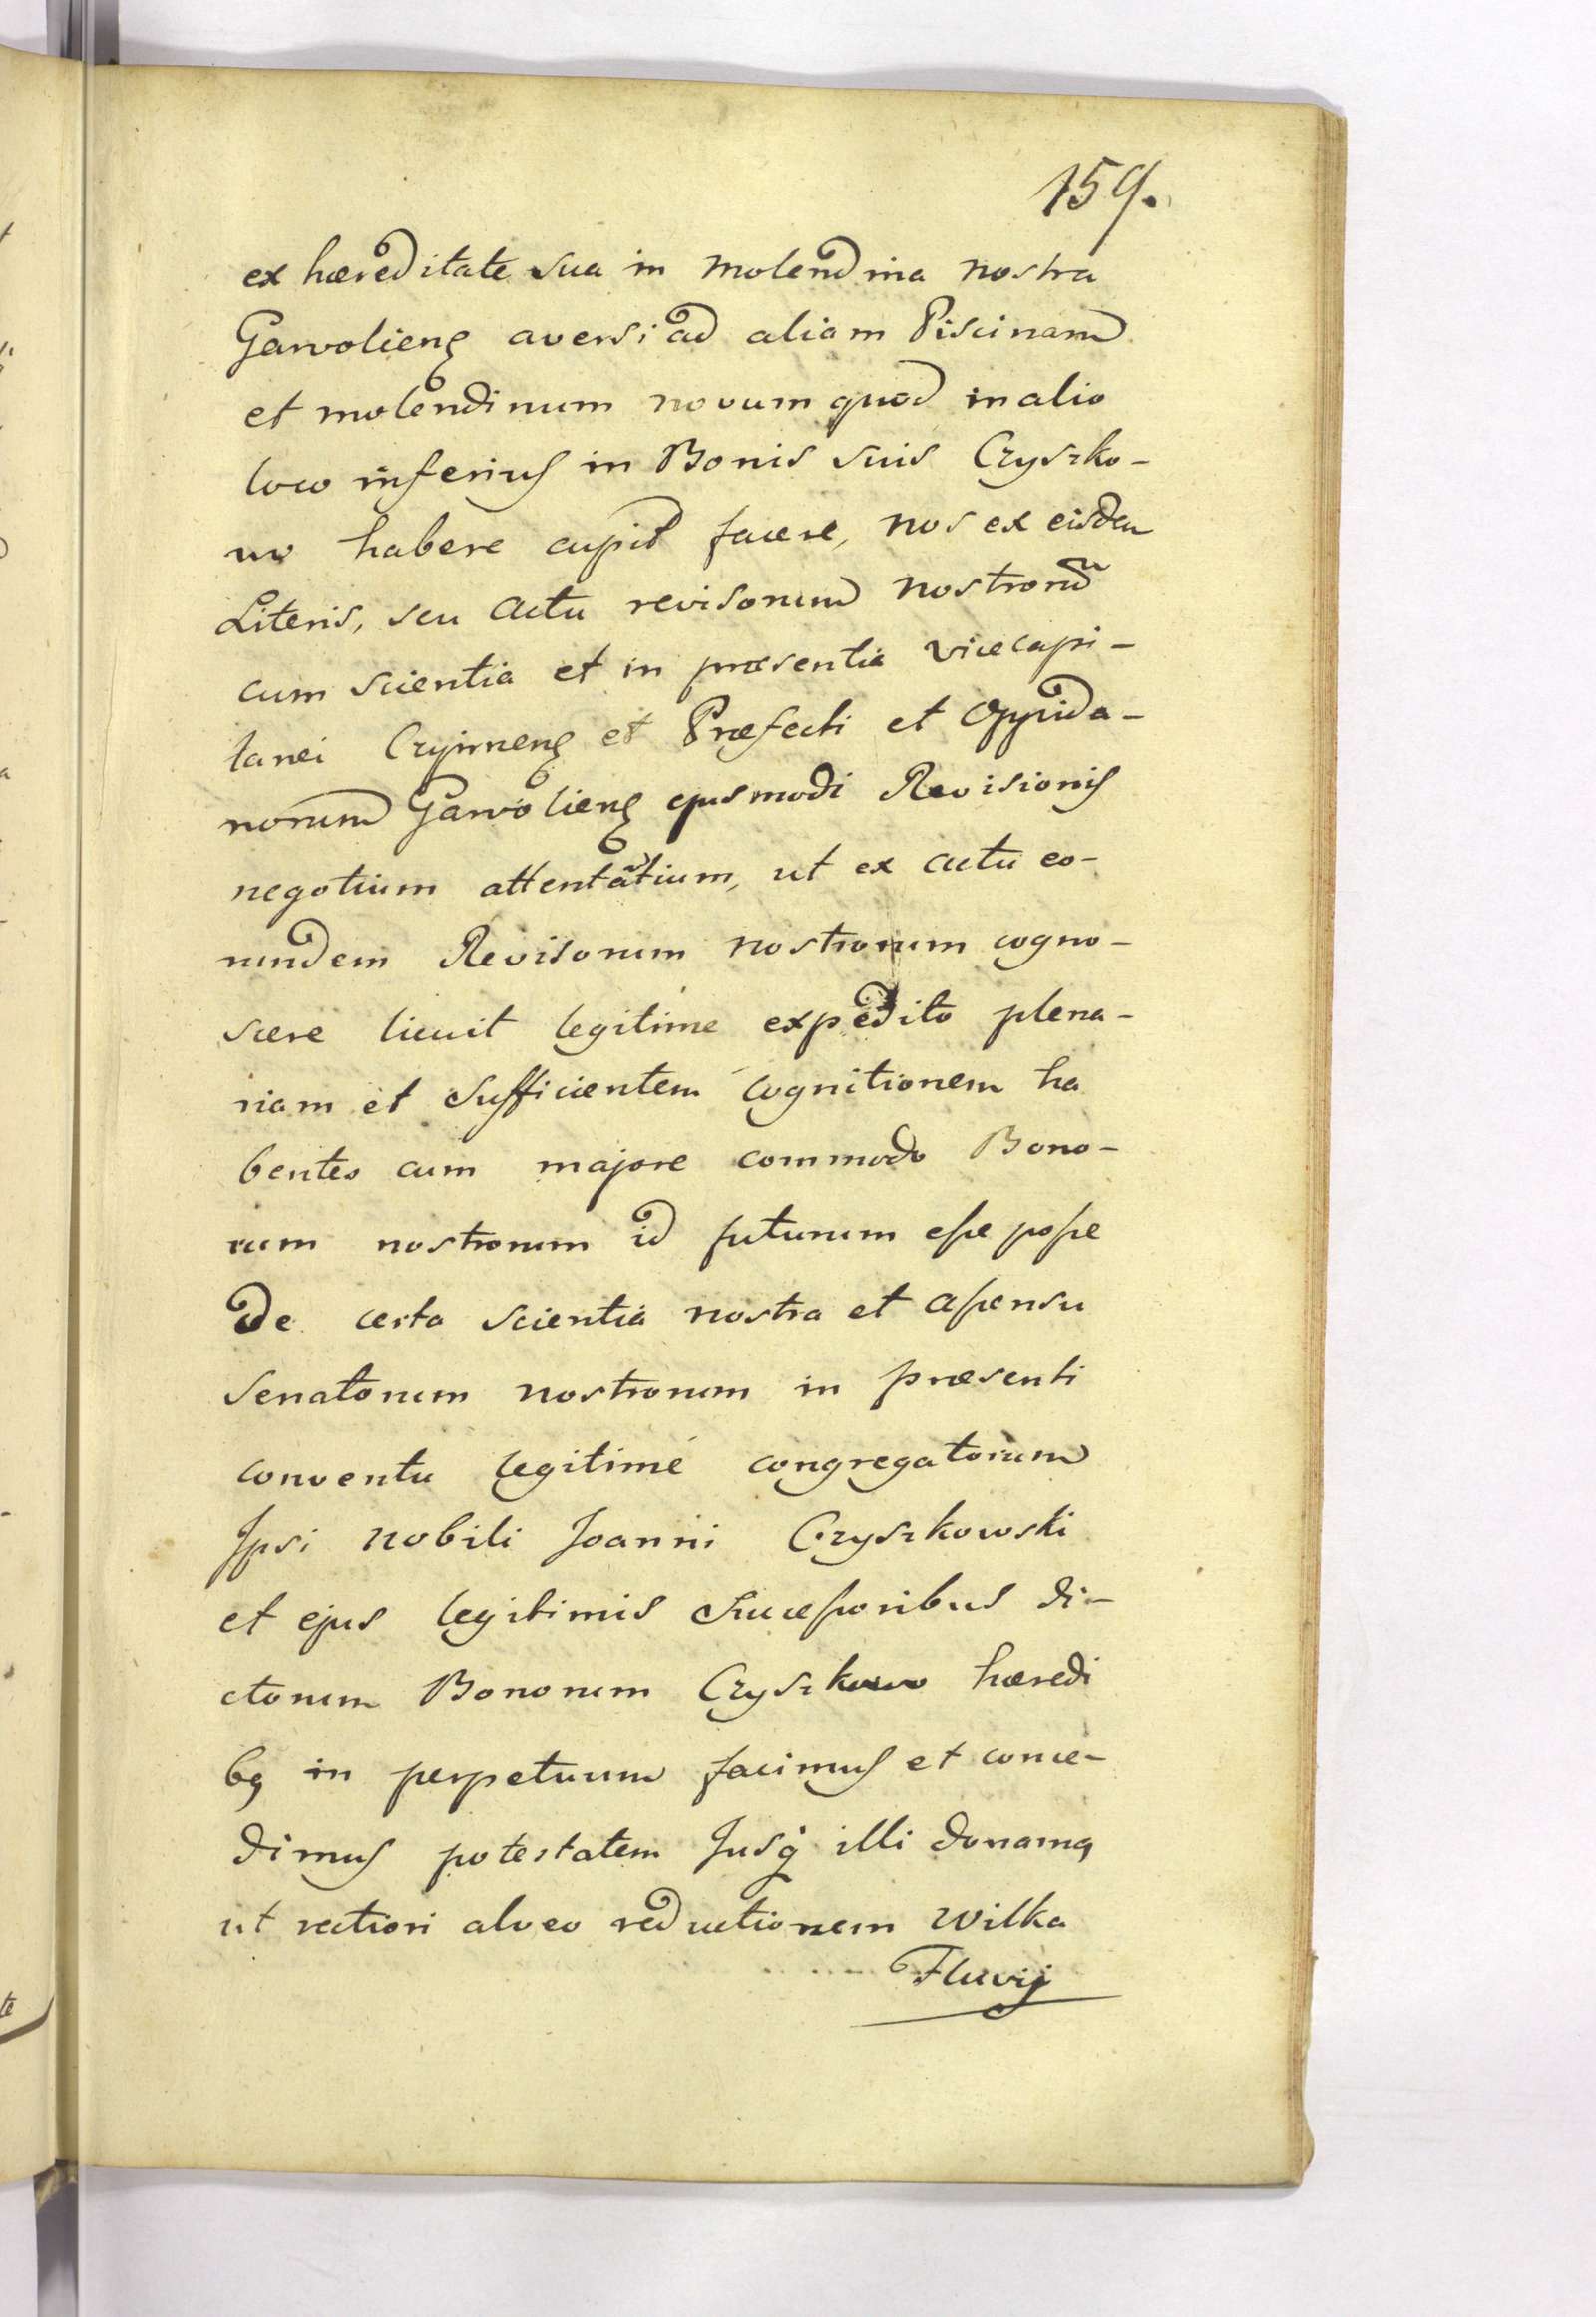 159.
ex hæreditate sua in molendina nostra
Garvolieng aversi ad aliam Piscinam
et molendinum novum quod in alio
loco inferius in Bonis suis Czyszko-
wo habere cupit facere, nos ex eisdem
Literis, seu actu revisorum nostrorū
cum scientia et in præsentia vicecapi-
tanei Czyrneng et Præfecti et Oppida-
norum Garvolieng ejusmodi Revisionis
negotium attentatium, ut ex actu eo-
rundem Revisorum nostrorum cogno-
scere licuit legitime expedito plena-
riam et sufficientem cognitionem ha
bentes cum majore commodo Bono-
rum nostrorum id futurum esse posse
De certa scientia nostra et assensu
Senatorum nostrorum in præsenti
conventu legitimé congregatorum
Ipsi nobili Joanni Czyszkowski
et ejus legitimis successoribus di-
ctorum Bonorum Czyszkowo hæredi
bq in perpetuum facimus et conce-
dimus potestatem Jusq̃ illi donamq
ut rectiori alveo reductionem Wilka
Fluvij